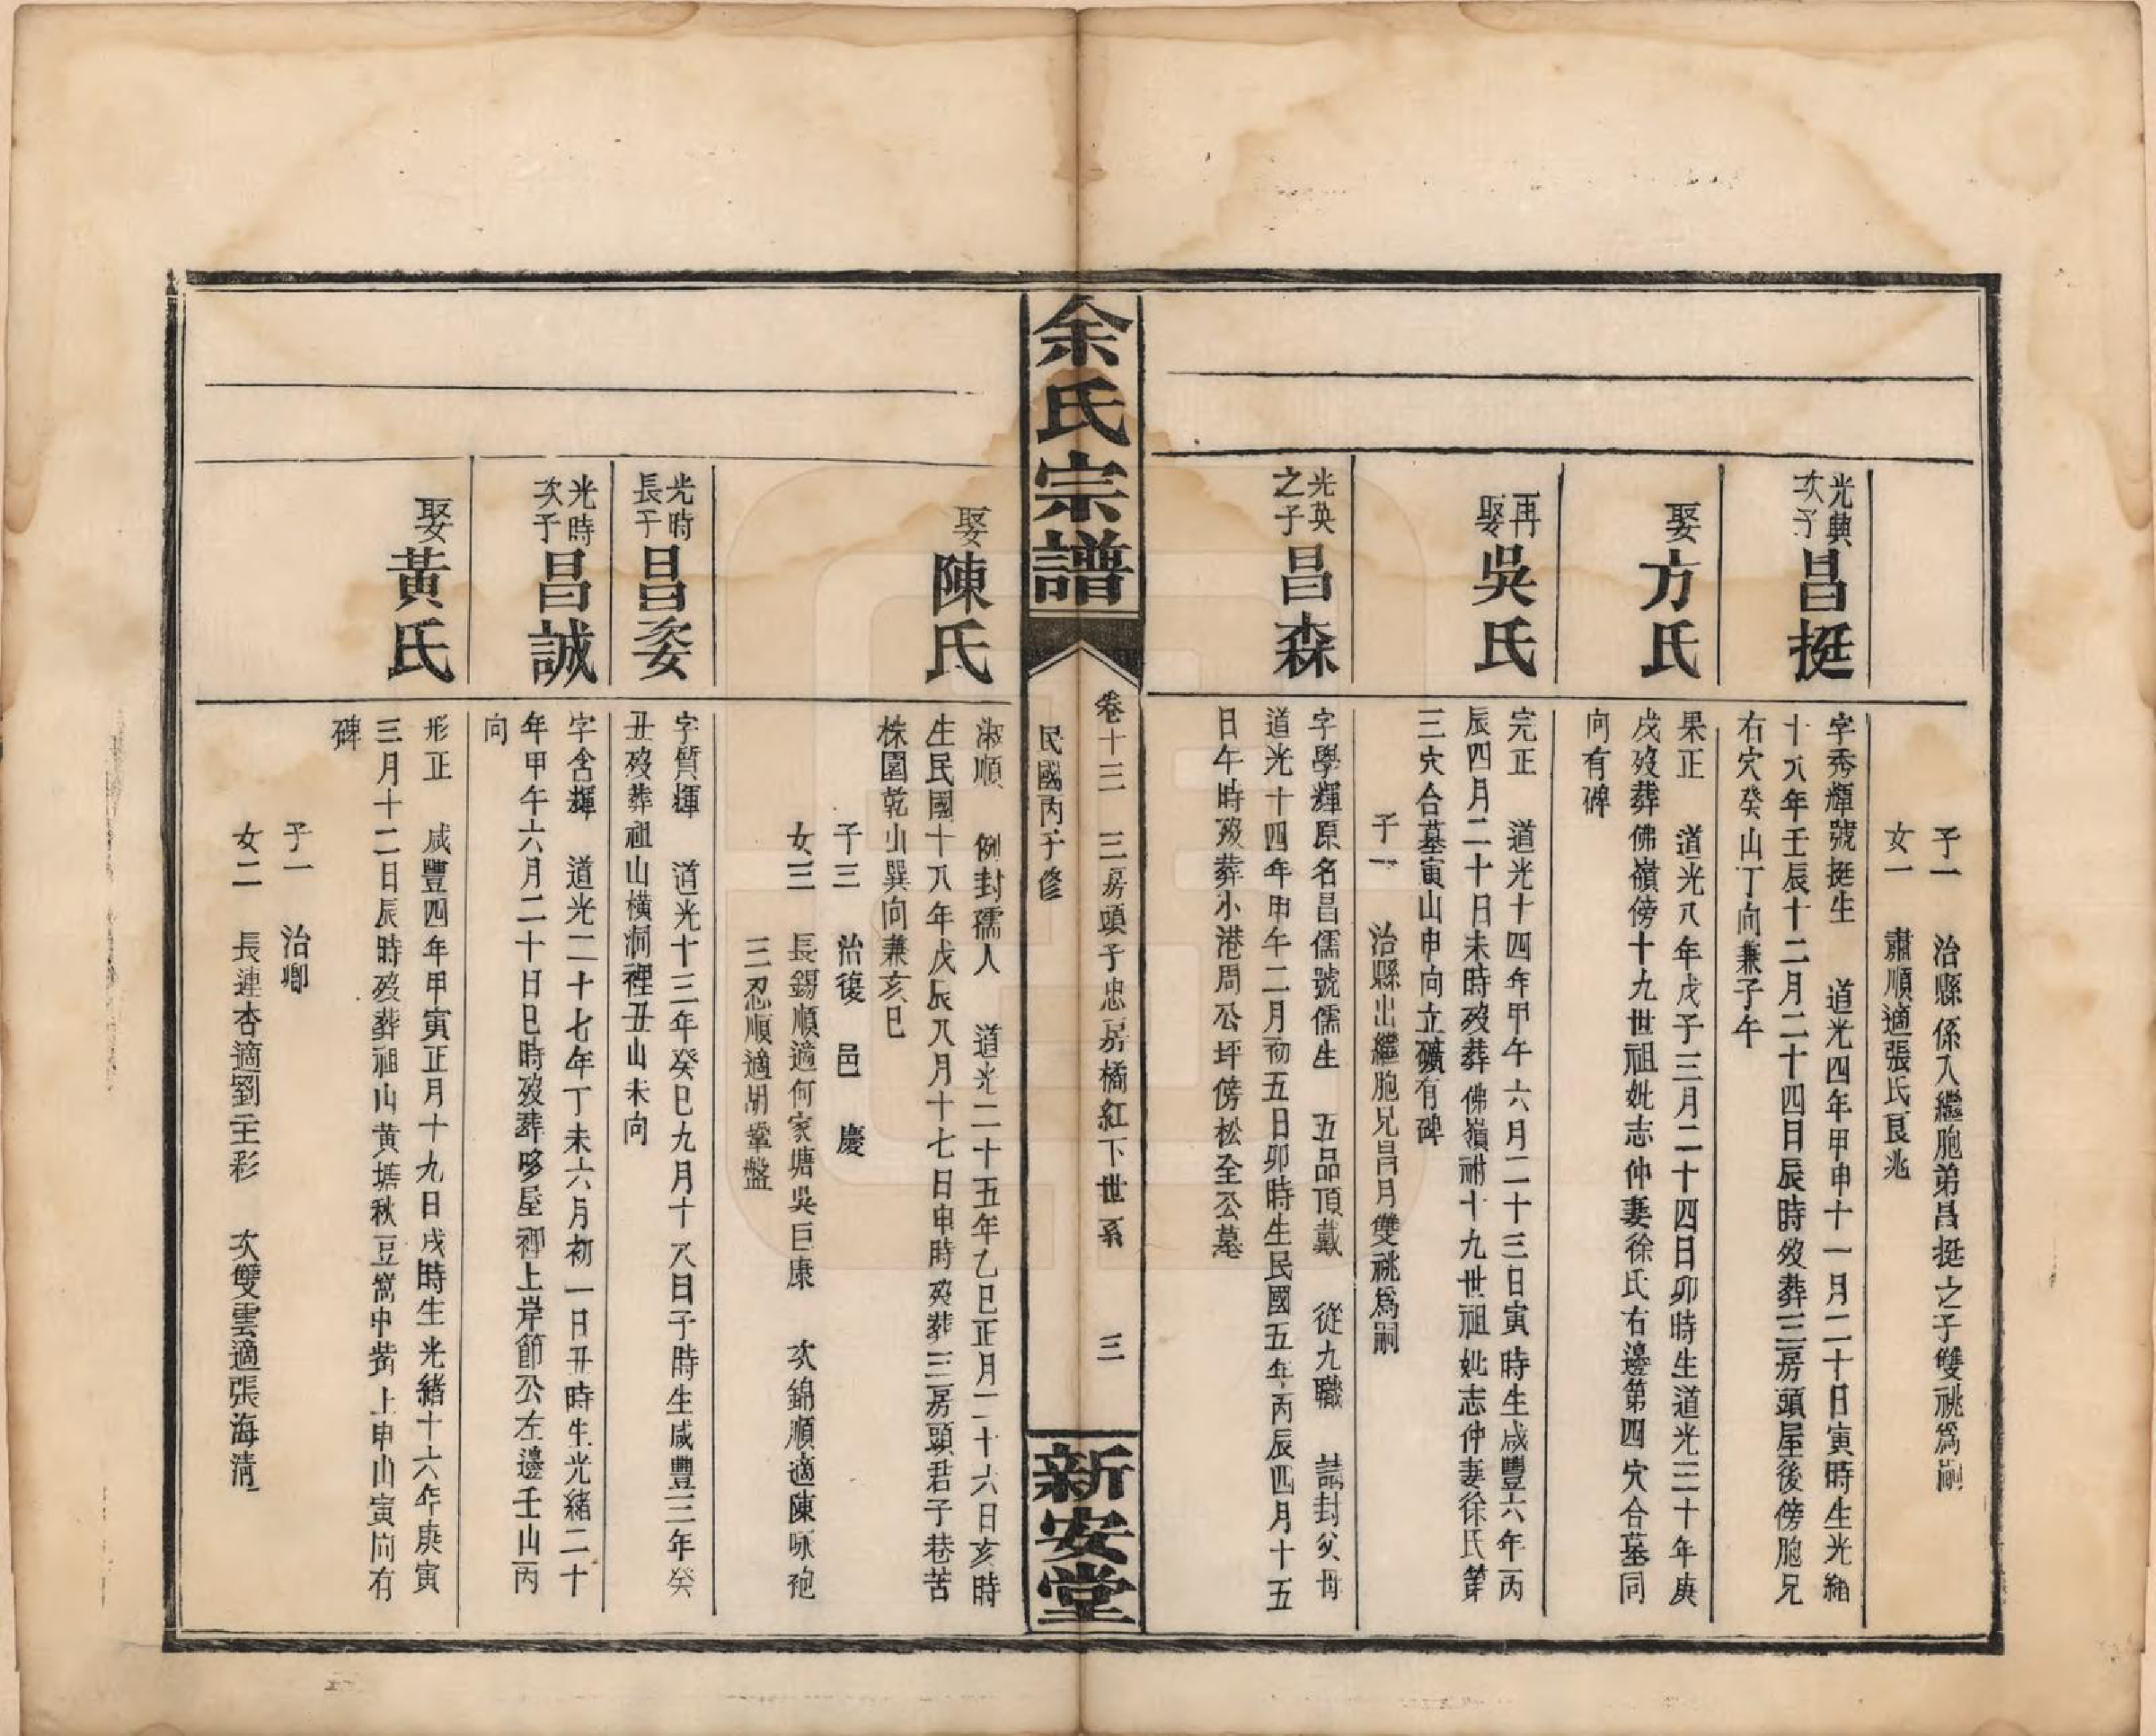 子一　治縣係入繼胞弟昌挺之子雙祧爲嗣
女一　肅順適張氏良兆
光典
次子
昌挺
字秀輝號挺生　道光四年甲申十一月二十日寅時生光緒
十八年壬辰十二月二十四日辰時歿葬三房頭屋後傍胞兄
右穴癸山丁向兼子午
娶
方氏
果正　道光八年戊子三月二十四日卯時生道光三十年庚
戌歿葬佛嶺傍十九世祖妣志仲妻徐氏右邊第四穴合墓同
向有碑
再
娶
吳氏
完正　道光十四年甲午六月二十三日寅時生咸豐六年丙
辰四月二十日未時歿葬佛嶺祔十九世祖妣志仲妻徐氏第
三穴合墓寅山申向立礦有碑
子一　治縣出繼胞兄昌月雙祧爲嗣
光英
之子
昌森
字學輝原名昌儒號儒生　五品頂戴　從九職　誥封父母
道光十四年甲午二月初五日卯時生民國五年丙辰四月十五
日午時歿葬小港周公坪傍松全公墓
余氏宗譜
卷十三　三房頭子忠房橘紅下世系　三
民國丙子修
新安堂
娶
陳氏
淑順　例封孺人　道光二十五年乙巳正月二十六日亥時
生民國十八年戊辰八月十七日申時歿葬三房頭君子巷苦
株園乾山巽向兼亥巳
子三　治復　邑　慶
女三　長錫順適何家塘吳巨康　次錦順適陳咏袍
三忍順適胡鞏盤
光時
長子
昌委
字質揮　道光十三年癸巳九月十八日子時生咸豐三年癸
丑歿葬祖山橫洞裡丑山未向
光時
次子
昌誠
字含輝　道光二十七年丁未六月初一日丑時生光緒二十
年甲午六月二十日巳時歿葬畈屋裡上岸節公左邊壬山丙
向
娶
黃氏
形正　咸豐四年甲寅正月十九日戌時生光緒十六年庚寅
三月十二日辰時歿葬祖山黃塘秋豆窩中嘴上申山寅向有
碑
子一　治卿
女二　長連杏適劉主彩　次雙雲適張海清